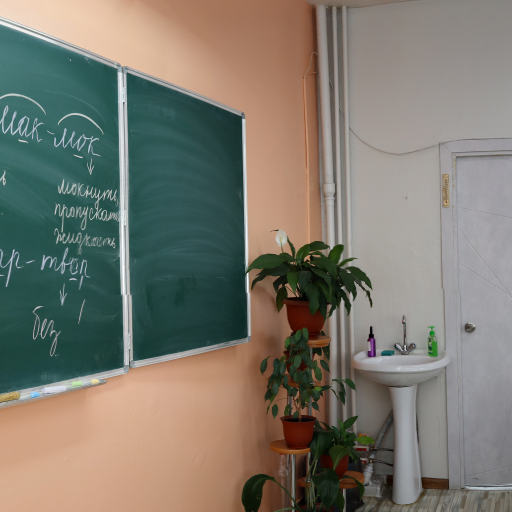 мак-мок
мокнуть,
пропускать
жидкость
ар-твар
без